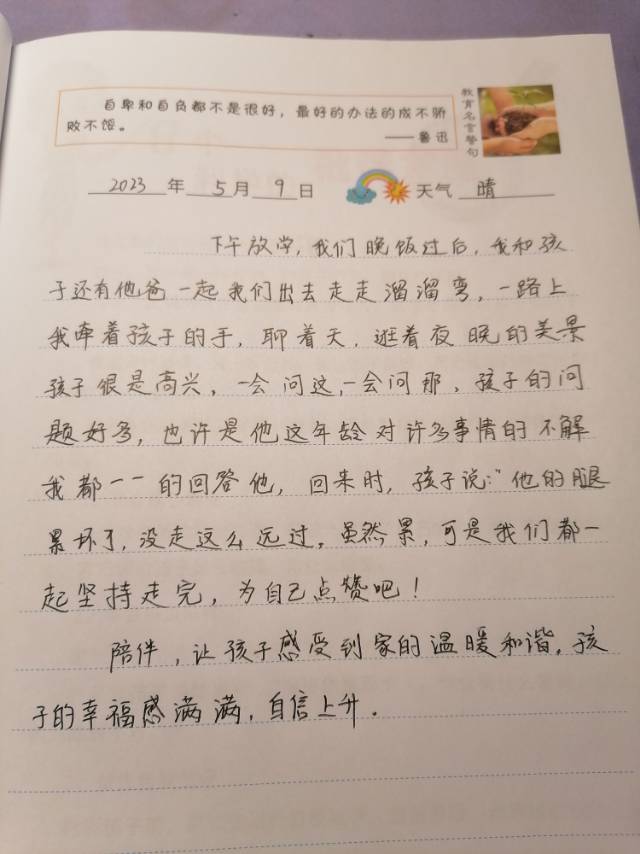 自卑和自负都不是很好，最好的办法的成不骄
败不馁。
——鲁迅
教育名言警句
2023年5月9日 天气 晴
下午放学，我们晚饭过后，我和孩
子还有他爸一起我们出去走走溜溜弯，一路上
我牵着孩子的手，聊着天，逛着夜晚的美景
孩子很是高兴，一会问这，一会问那，孩子的问
题好多，也许是他这年龄对许多事情的不解
我都一一的回答他，回来时，孩子说：“他的腿
累坏了，没走这么远过。虽然累，可是我们都一
起坚持走完，为自己点赞吧！
陪伴，让孩子感受到家的温暖和谐，孩
子的幸福感满满，自信上升。